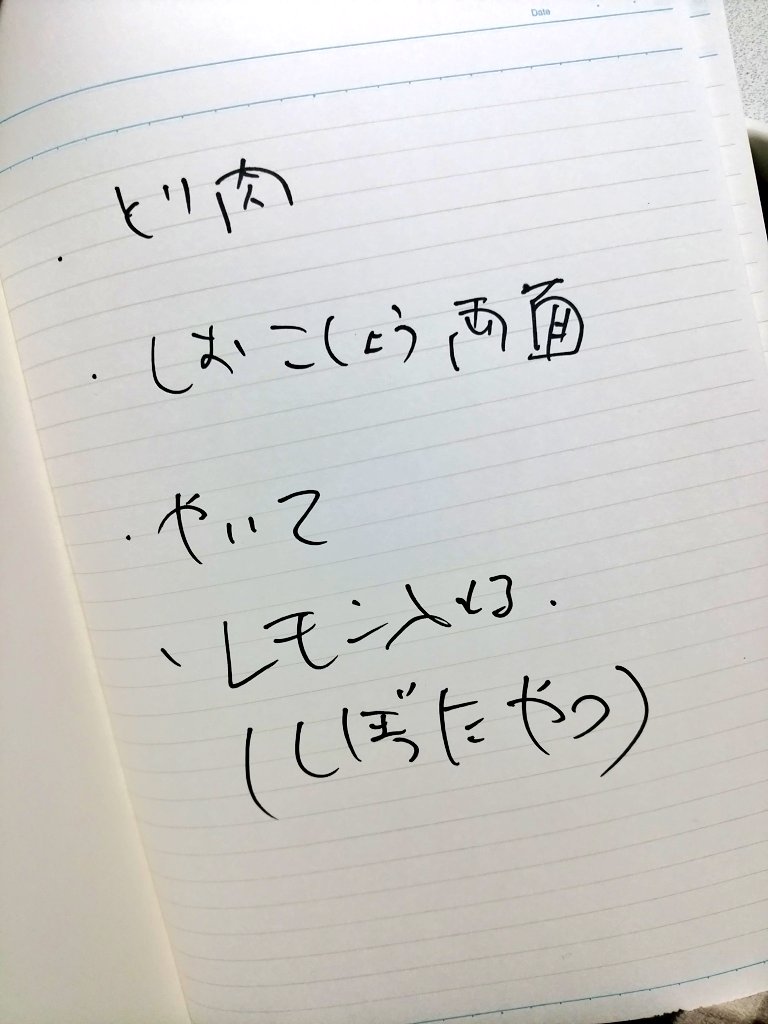 Date
・とり肉
・しおこしょう両面
・やいて
、レモン入れる.
(しぼったやつ)